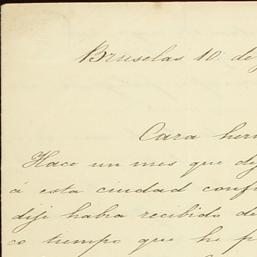 Bruselas 10. de
Cara her
Hace un mes que de
á esta ciudad conf
dije habia recibido de
co tiempo que he p